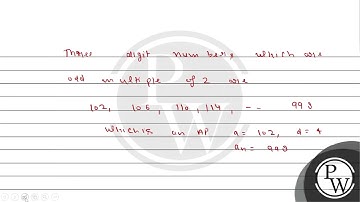 Three digit numbers which are
odd multiple of 2 are
102, 106, 110, 114, -- 998
which is an AP a = 102, d = 4
an = 998
PW